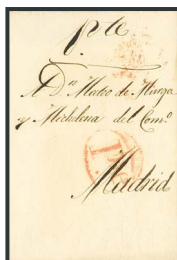 pte
A Dn Mateo de Murga
y Michelena del Como
Madrid